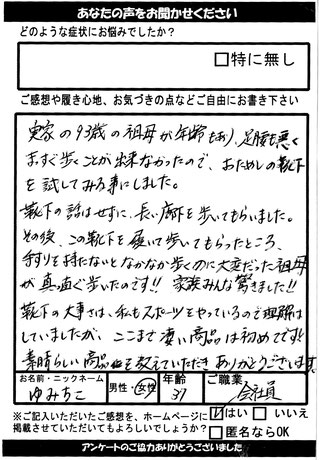 あなたの声をお聞かせください
どのような症状にお悩みでしたか？
□特に無し
ご感想や履き心地、お気づきの点などご自由にお書き下さい
実家の93歳の祖母が年齢もあり、足腰も悪く
まっすぐ歩くことが出来なかったので、おためしの靴下
を試してみる事にしました。
靴下の話はせずに、長い廊下を歩いてもらいました。
その後、この靴下を履いて歩いてもらったところ、
手すりを持たないとなかなか歩くのに大変だった祖母
が真っ直ぐ歩いたのです!! 家族みんな驚きました!!
靴下の大事さは、私もスポーツをやっているので理解は
していましたが、ここまで凄い商品は初めてです!!
素晴らしい商品を教えていただきありがとうございます。
お名前・ニックネーム
ゆみちこ
男性・女性
年齢
37
ご職業
会社員
※ご記入いただいたご感想を、ホームページに
掲載させていただいてもよろしいでしょうか？
☑はい □いいえ
□匿名ならOK
アンケートのご協力ありがとうございました